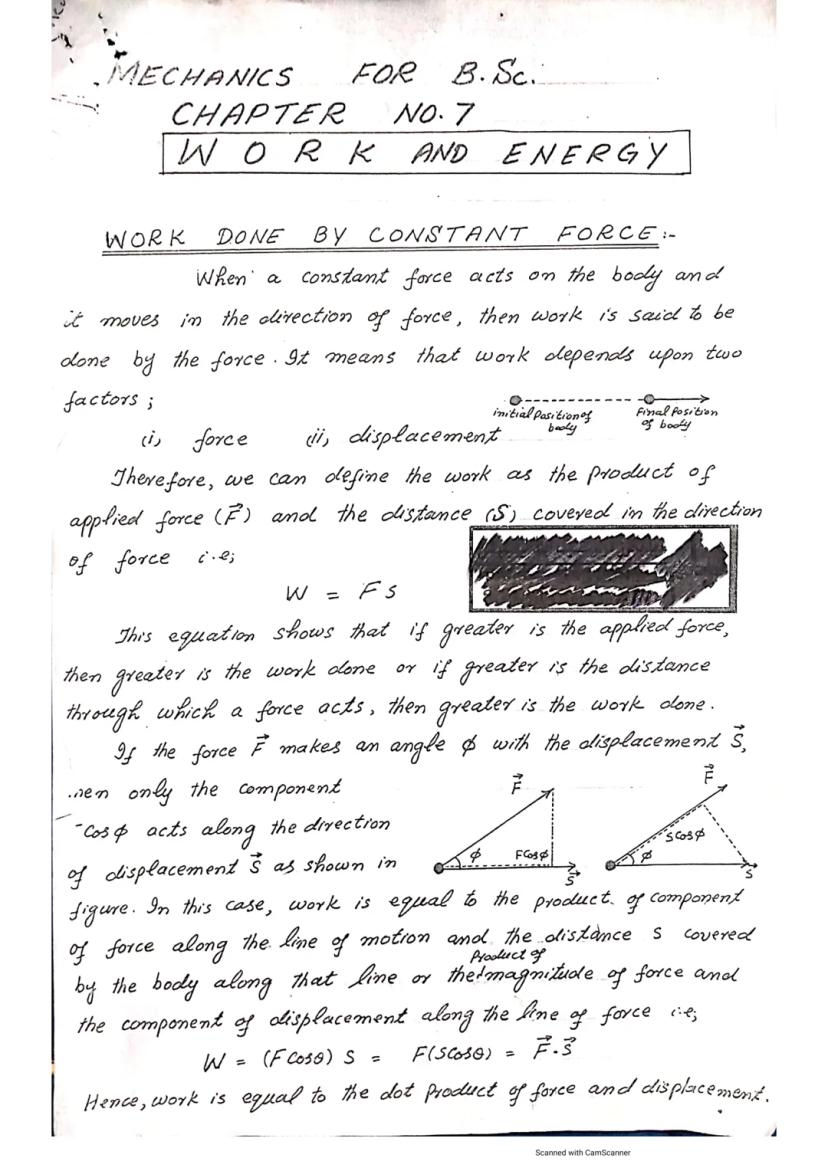 MECHANICS FOR B.Sc.
CHAPTER NO.7
WORK AND ENERGY
WORK DONE BY CONSTANT FORCE:-
When a constant force acts on the body and
it moves in the direction of force, then work is said to be
done by the force. It means that work depends upon two
factors;
initial Position of body
Final Position of body
(i) force (ii) displacement
Therefore, we can define the work as the product of
applied force (F⃗) and the distance (S) covered in the direction
of force i.e;
W = Fs
This equation shows that if greater is the applied force,
then greater is the work done or if greater is the distance
through which a force acts, then greater is the work done.
If the force F⃗ makes an angle φ with the displacement S⃗,
only the component
Cosφ acts along the direction
of displacement S⃗ as shown in
F⃗ φ FCosφ S⃗
F⃗ SCosφ φ S⃗
figure. In this case, work is equal to the product of component
of force along the line of motion and the distance S covered
by the body along that line or the Product of magnitude of force and
the component of displacement along the line of force i.e;
W = (FCosθ) S = F(SCosθ) = F⃗.S⃗
Hence, work is equal to the dot product of force and displacement.
Scanned with CamScanner